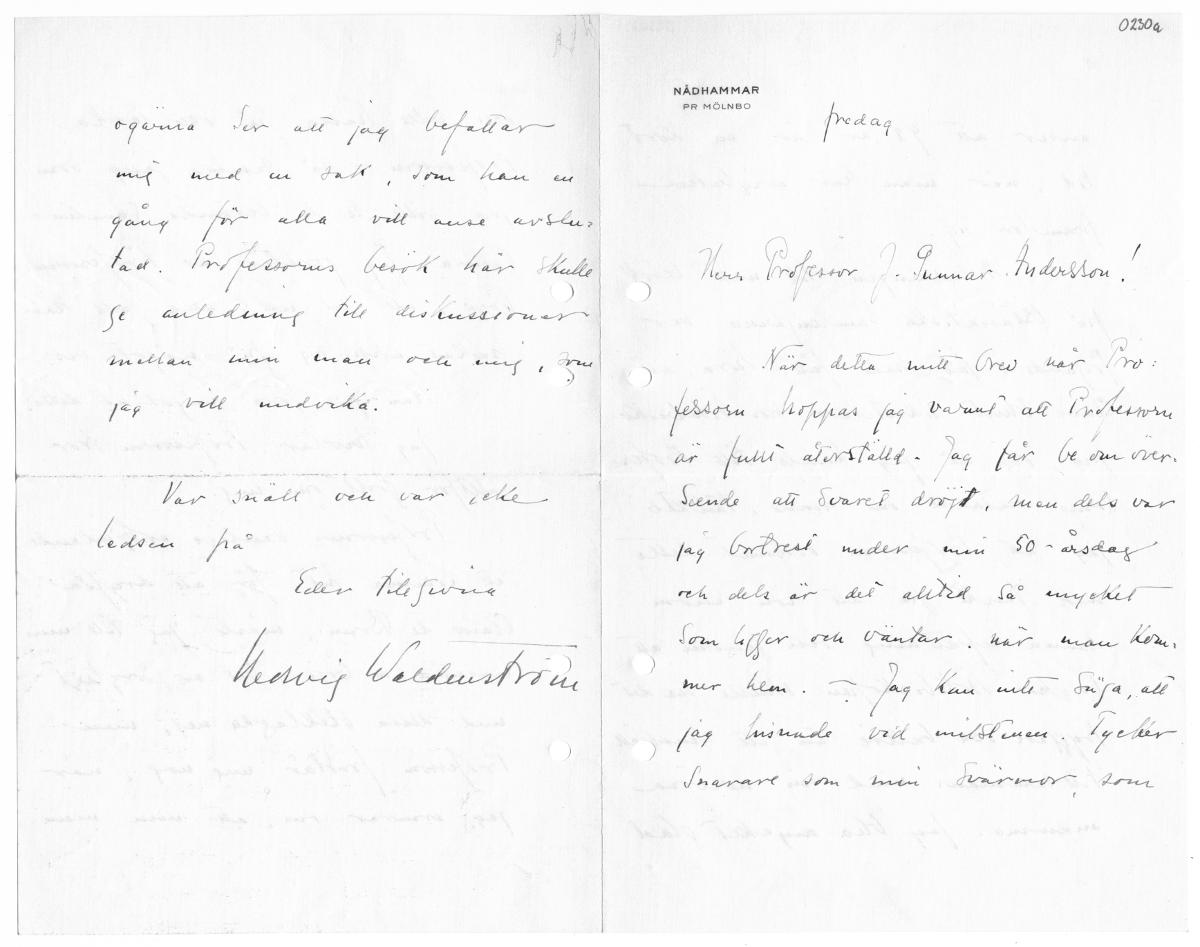 0230a
NÅDHAMMAR
PR MÖLNBO
fredag
Herr Professor J. Gunnar Andersson!
När detta mitt brev når Pro=
fessorn hoppas jag varmt att Professorn
är fullt återställd. Jag får be om över-
seende att svaret dröjt, men dels var
jag bortrest under min 50-årsdag
och dels är det alltid så mycket
som ligger och väntar när man kom-
mer hem. — Jag kan inte säga, att
jag hisnade vid milstenen. Tycker
snarare som min svärmor, som
ogärna ser att jag befattar
mig med en sak, som han en
gång för alla vill anse avslu=
tad. Professorns besök här skulle
ge anledning till diskussioner
mellan min man och mig, som
jag vill undvika.
Var snäll och var icke
ledsen på
Eder tillgivna
Hedvig Waldenström